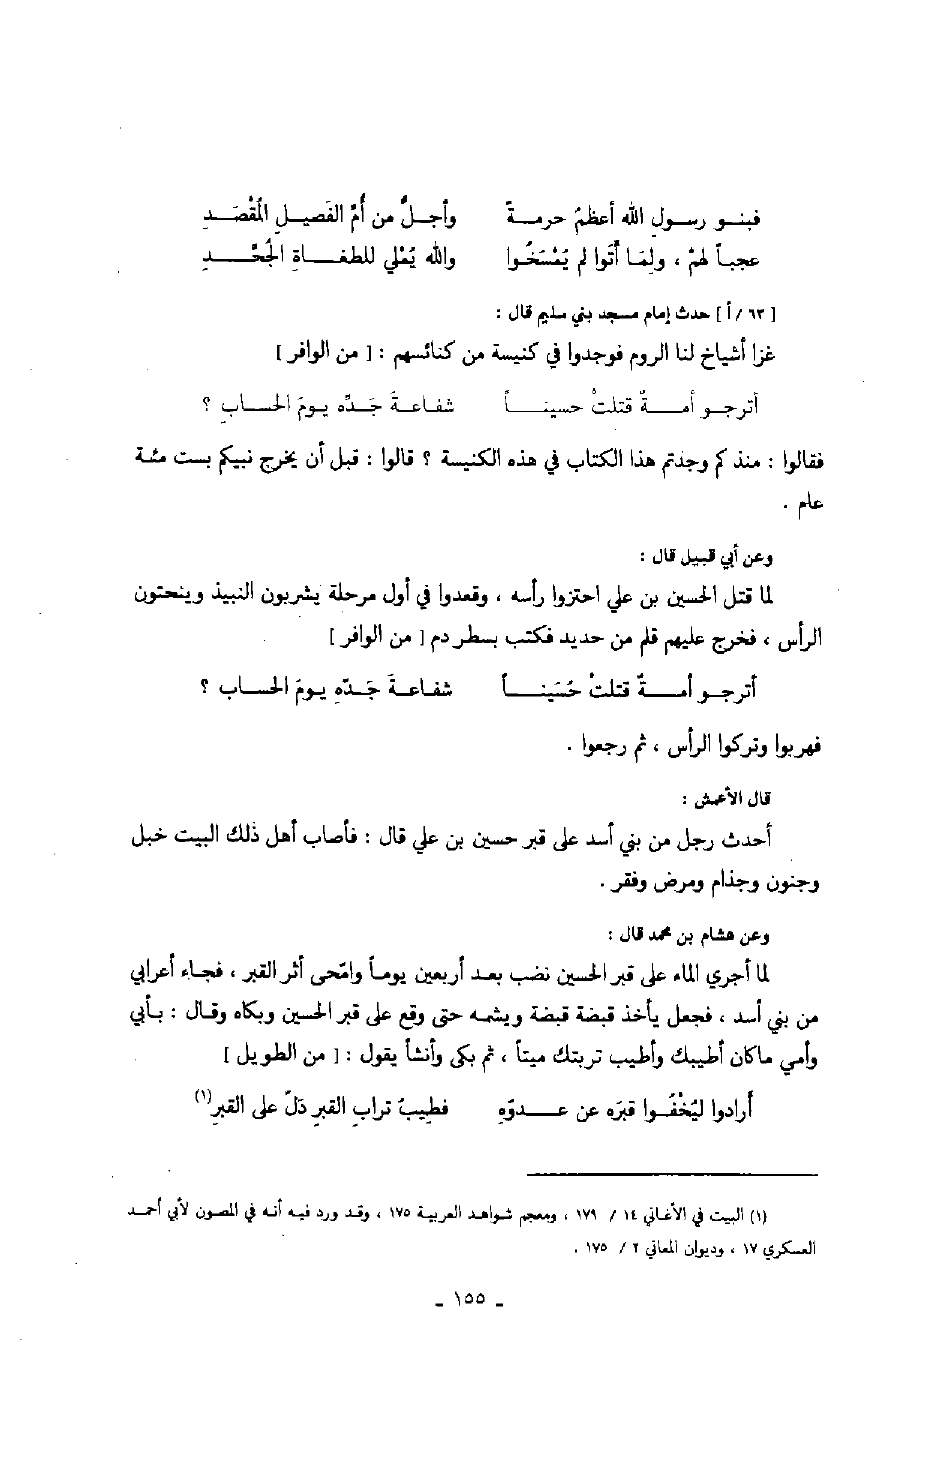 فبنو رسول الله أعظمُ حرمةً وأجلُّ من أمِّ الفَصيلِ المُقْصَدِ
عجباً لهمْ ، ولِمَا أتَوا لم يُمْسَخُوا والله يُمْلي للطغاةِ الجُحَّدِ
[ ٦٣ / أ ] حدث إمام مسجد بني سليم قال :
غزا أشياخ لنا الروم فوجدوا في كنيسة من كنائسهم : [ من الوافر ]
أترجو أمةٌ قتلتْ حسيناً شفاعةَ جَدِّه يومَ الحسابِ ؟
فقالوا : منذ كم وجدتم هذا الكتاب في هذه الكنيسة ؟ قالوا : قبل أن يخرج نبيكم بست مئة
عام .
وعن أبي قبيل قال :
لما قتل الحسين بن علي احتزوا رأسه ، وقعدوا في أول مرحلة يشربون النبيذ وينحتون
الرأس ، فخرج عليهم قلم من حديد فكتب بسطر دم [ من الوافر ]
أترجو أمةٌ قتلتْ حُسَيناً شفاعةَ جَدِّهِ يومَ الحسابِ ؟
فهربوا وتركوا الرأس ، ثم رجعوا .
قال الأعمش :
أحدث رجل من بني أسد على قبر حسين بن علي قال : فأصاب أهل ذلك البيت خبل
وجنون وجذام ومرض وفقر .
وعن هشام بن محمد قال :
لما أجري الماء على قبر الحسين نضب بعد أربعين يوماً وامّحى أثر القبر ، فجاء أعرابي
من بني أسد ، فجعل يأخذ قبضة قبضة ويشمه حتى وقع على قبر الحسين وبكاه وقال : بأبي
وأمي ماكان أطيبك وأطيب تربتك ميتاً ، ثم بكى وأنشأ يقول : [ من الطويل ]
أرادوا ليُخْفُوا قبرَه عن عدوّهِ فطيبُ ترابِ القبرِ دَلَّ على القبرِ(١)
(١) البيت في الأغاني ١٤ / ١٧٩ ، ومعجم شواهد العربية ١٧٥ ، وقد ورد فيه أنه في المصون لأبي أحمد
العسكري ١٧ ، وديوان المعاني ٢ / ١٧٥ .
ـ ١٥٥ ـ